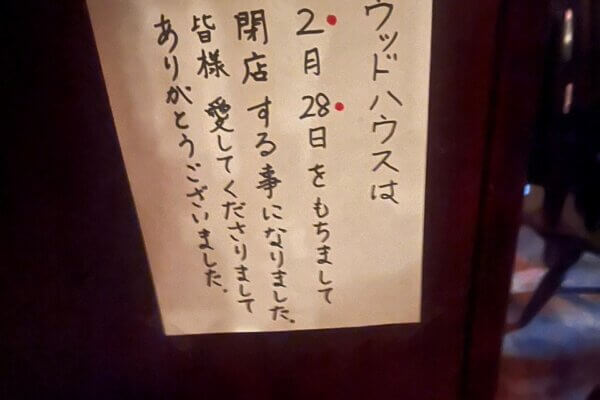 ウッドハウスは
2月28日をもちまして
閉店する事になりました。
皆様 愛してくださりまして
ありがとうございました。